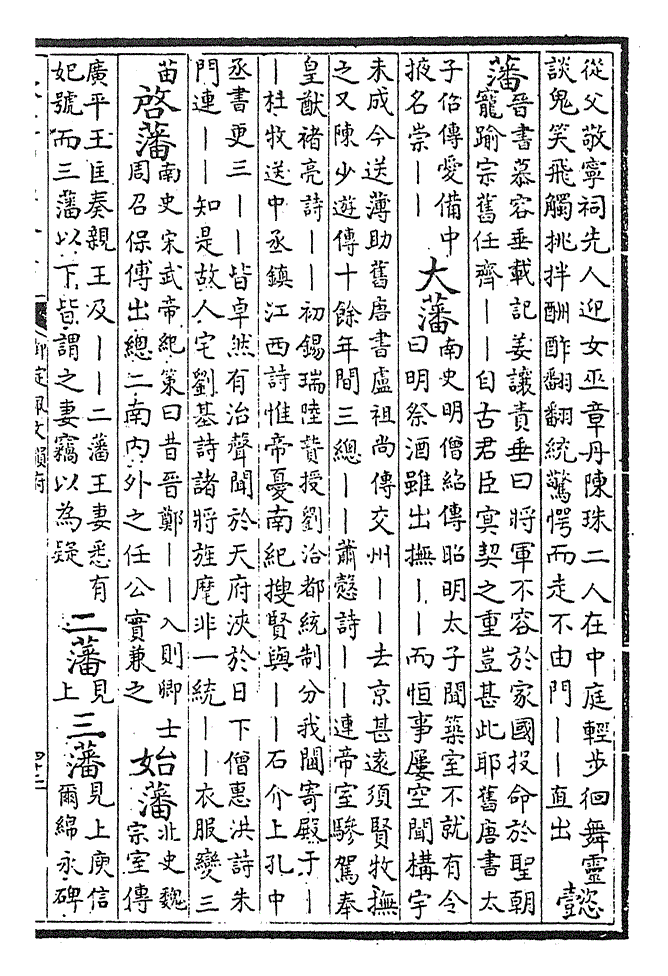 從父敬寧祠先人迎女巫章丹陳珠二人在中庭輕步徊舞靈
談鬼笑飛觸挑拌酬酢翻翻統驚愕而走不由門||直出 懿
藩 晉書慕容垂載記姜讓責垂曰將軍不容於家國投命於聖朝
寵踰宗舊任齊||自古君臣冥契之重豈甚此耶舊唐書太
子佋傳愛備中
掖名崇||
大藩 南史明僧紹傳昭明太子聞築室不就有令
曰明祭酒雖出撫||而恒事屢空聞構宇
未成今送薄助舊唐書盧祖尚傳交州||去京甚遠須賢牧撫
之又陳少遊傳十餘年間三總||蕭慤詩||連帝室驂駕奉
皇猷褚亮詩||初錫瑞陸贄授劉洽都統制分我閫寄殿于|
|杜牧送中丞鎮江西詩惟帝憂南紀搜賢與||石介上孔中
丞書更三||皆卓然有治聲聞於天府浹於日下僧惠洪詩朱
門連||知是故人宅劉基詩諸將旌麾非一統||衣服變三
苗 啓藩 南史宋武帝紀策曰昔晉鄭||入則卿士
周召保傅出總二南內外之任公實兼之
始藩 北史魏
宗室傳
廣平王匡奏親王及||二藩王妻悉有
妃號而三藩以下皆謂之妻竊以為疑
二藩 見
上
三藩 見上庾信
爾綿永碑
御定佩文韻府